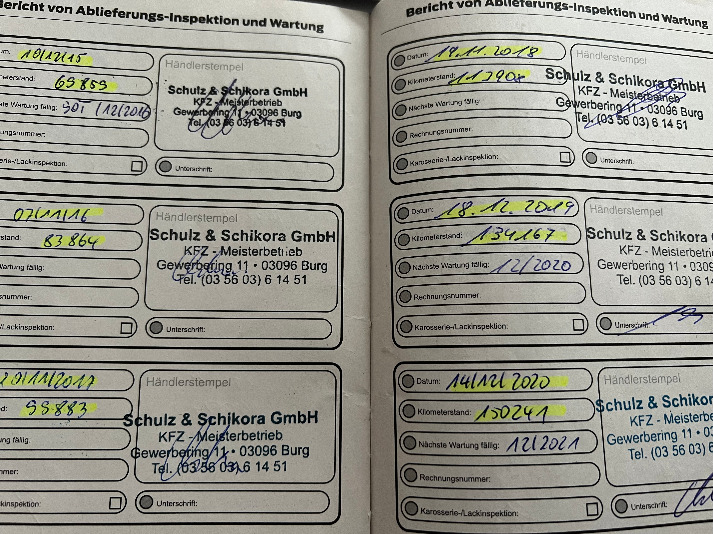 Bericht von Ablieferungs-Inspektion und Wartung
10/12/15
69859
Wartung fällig: SOT 12/2016
Händlerstempel
Schulz & Schikora GmbH
KFZ - Meisterbetrieb
Gewerbering 11 • 03096 Burg
Tel. (03 56 03) 6 14 51
Unterschrift:
07/11/16
83864
Wartung fällig:
Händlerstempel
Schulz & Schikora GmbH
KFZ - Meisterbetrieb
Gewerbering 11 • 03096 Burg
Tel. (03 56 03) 6 14 51
/Lackinspektion:
Unterschrift:
20/11/2017
99883
Wartung fällig:
Händlerstempel
Schulz & Schikora GmbH
KFZ - Meisterbetrieb
Gewerbering 11 • 03096 Burg
Tel. (03 56 03) 6 14 51
Unterschrift:
Bericht von Ablieferungs-Inspektion und Wartung
Datum: 14.11.2018
Kilometerstand: 117908
Nächste Wartung fällig:
Rechnungsnummer:
Karosserie-/Lackinspektion:
Händlerstempel
Schulz & Schikora GmbH
KFZ - Meisterbetrieb
Gewerbering 11 • 03096 Burg
Tel. (03 56 03) 6 14 51
Unterschrift:
Datum: 18.12.2019
Kilometerstand: 134167
Nächste Wartung fällig: 12/2020
Rechnungsnummer:
Karosserie-/Lackinspektion:
Händlerstempel
Schulz & Schikora
KFZ - Meisterbe
Gewerbering 11 • 03
Tel. (03 56 03) 6 14
Unterschrift:
Datum: 14/12/2020
Kilometerstand: 150241
Nächste Wartung fällig: 12/2021
Rechnungsnummer:
Karosserie-/Lackinspektion:
Händlerstempel
Schulz & Schikor
KFZ - Meisterb
Gewerbering 11 • 0
Tel. (03 56 03) 6
Unterschrift: